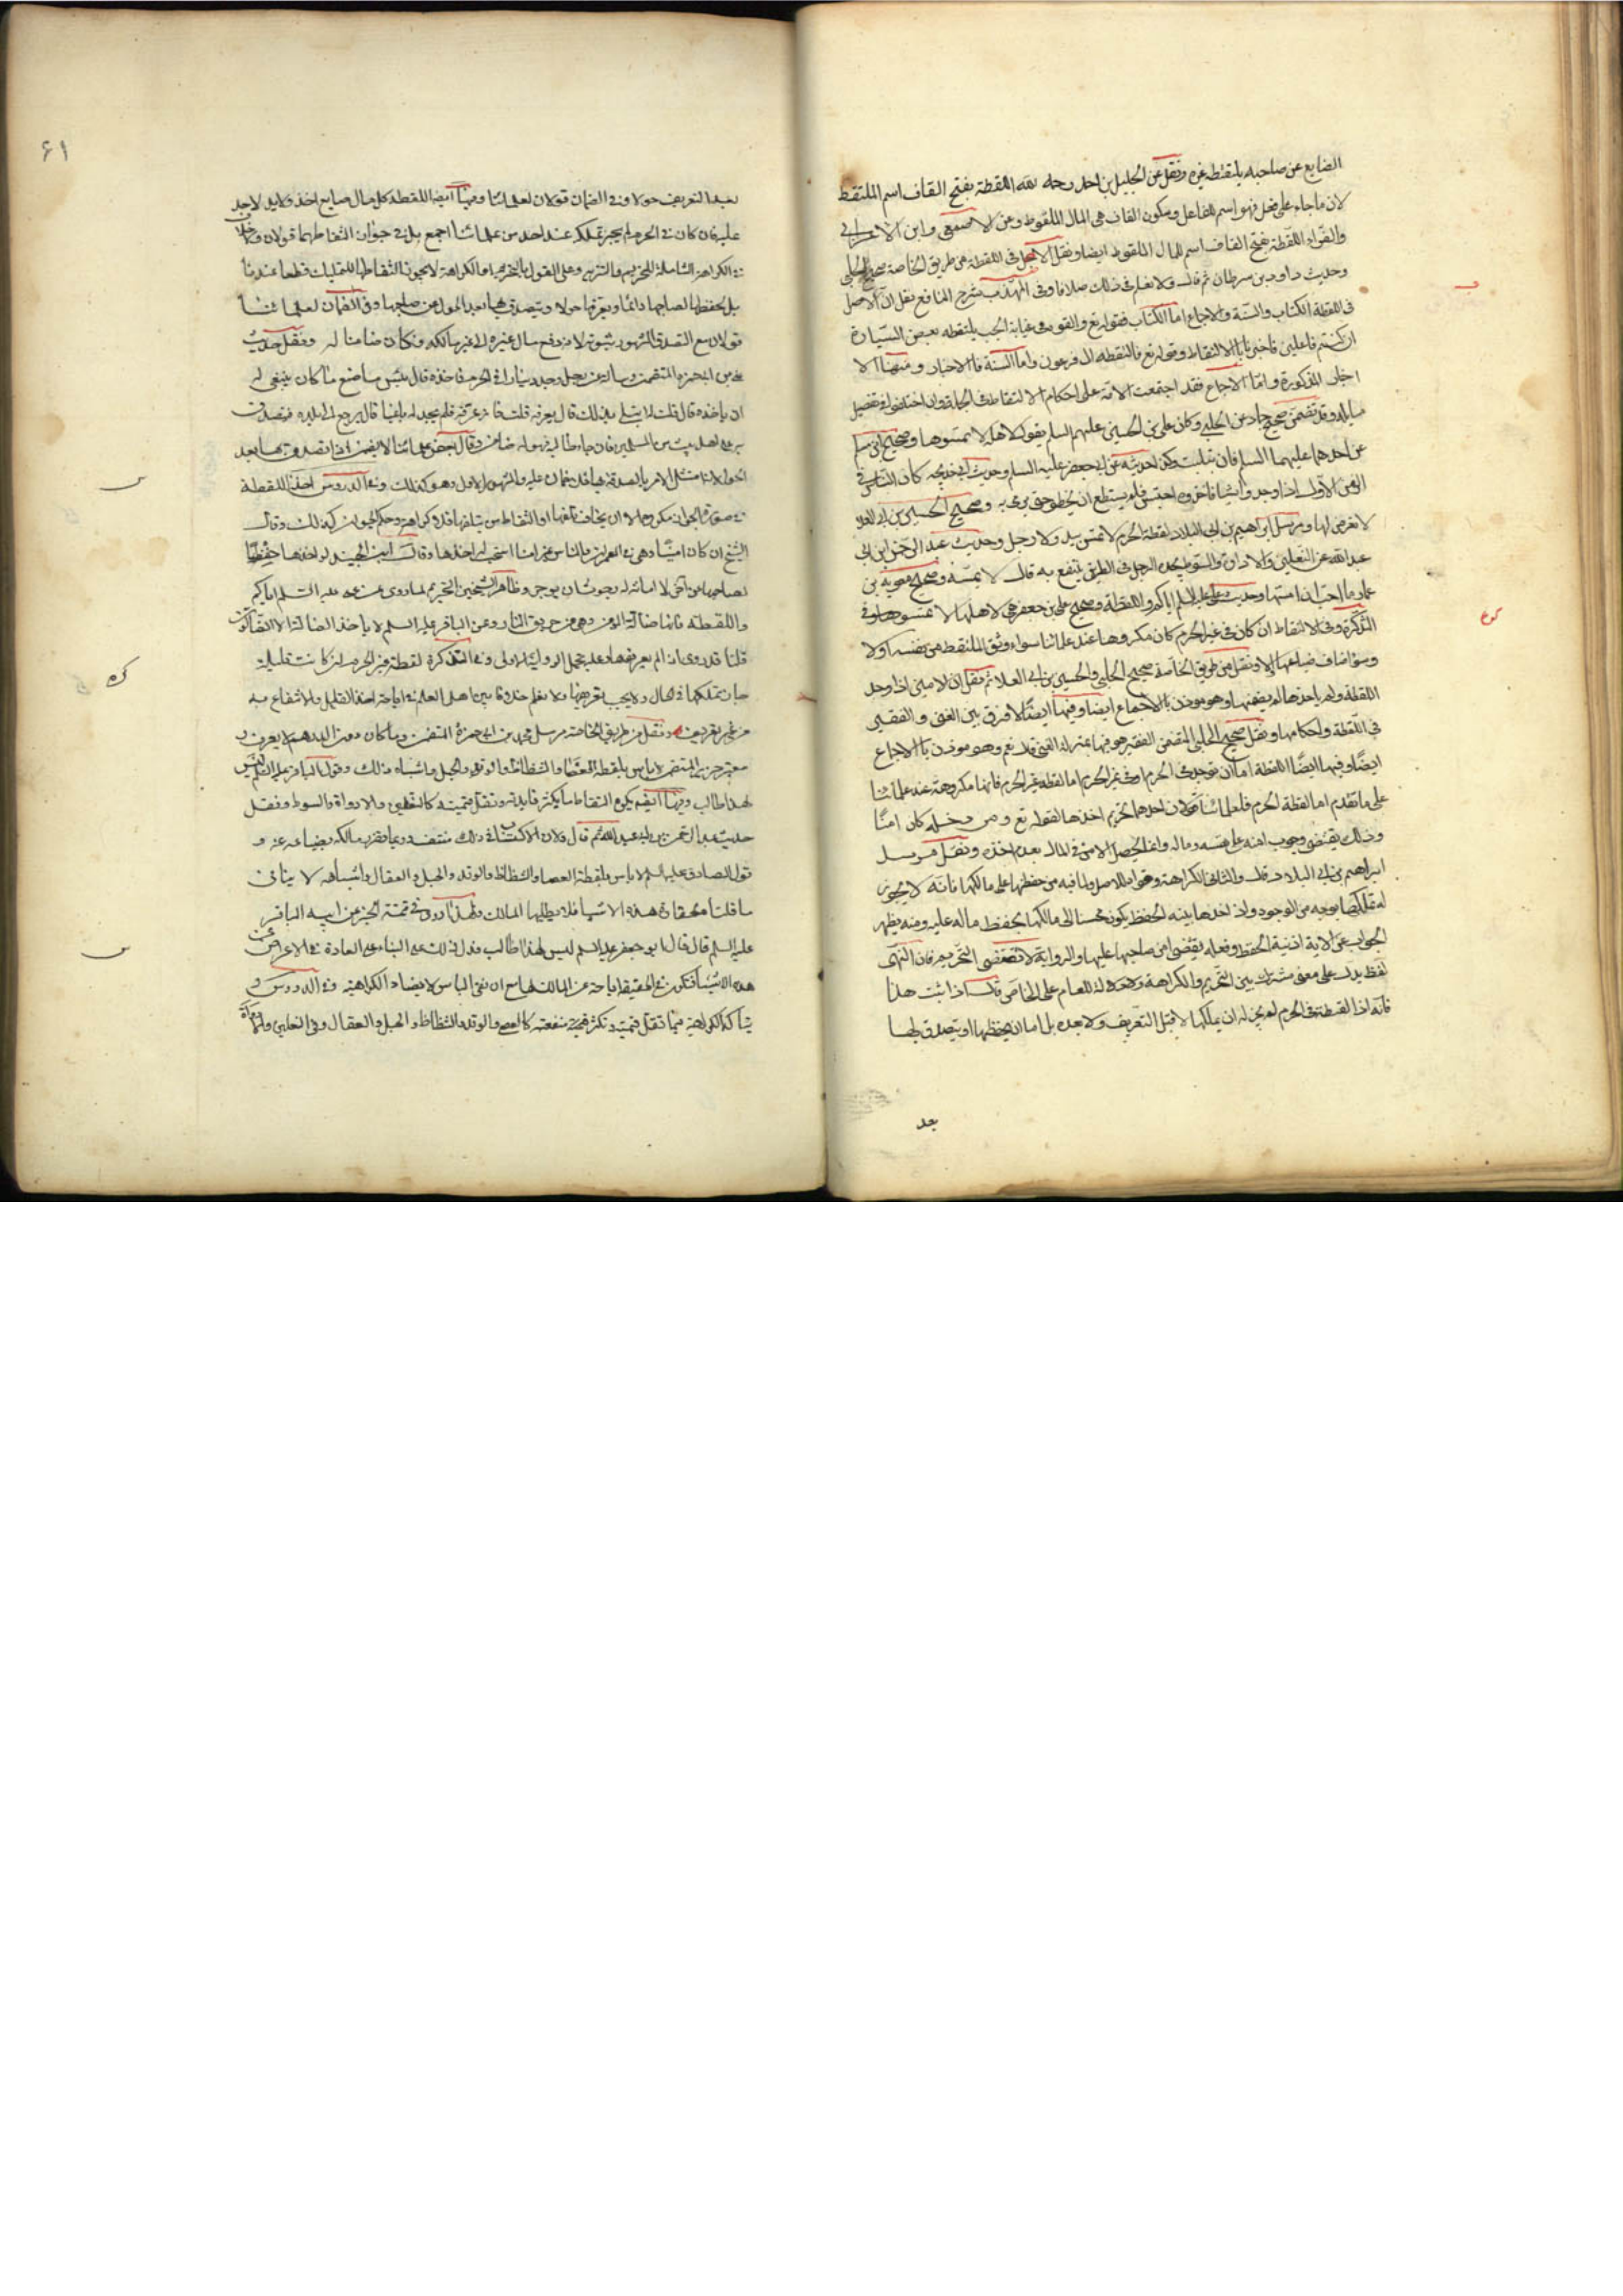 الضايع عن صاحبه يلتقطه غيره ونقل عن الخليل بن احمد رحمه الله اللقطة بفتح القاف اسم الملتقط
لان ما جاء على فعل فهو اسم للفاعل وبسكون القاف هى المال الملقوط وعن الاصمعى وابن الاعرابى
والفراء اللقطة بفتح القاف اسم للمال الملقوط ايضا ونقل الاصل فى اللقطة من طريق الخاصة صحيح الحلبى
وحديث داود بن سرحان ثم قال ولا نعلم فى ذلك خلافا وفى المهذب شرح النافع نقل ان الاصل
فى اللقطة الكتاب والسنة والاجماع اما الكتاب فقوله تع والقوه فى غيابة الجب يلتقطه بعض السيارة
ان كنتم فاعلين فاخبرنا بالالتقاط وقوله تع فالتقطه ال فرعون واما السنة فالاخبار ومنها الا
خبار المذكورة واما الاجماع فقد اجتمعت الامة على احكام الالتقاط فى الجملة وان اختلفوا فى تفصيل
مسايله وقد تضمن صحيح حماد عن الحلبى وكان على بن الحسين عليهم السلم يقول لاهله لا تمسوها وصحيح ابن مسلم
عن احدهما عليهما السلم فان ابتليت وكذا حديثه عن ابى جعفر عليه السلم وحديث ابى خديجه كان الناس فى
الزمن الاول اذا وجدوا شيئا فاخذوه احتبس فلم يستطع ان يخطو حتى يرمى به وصحيح الحسين بن ابى العلا
لا تعرض لها ومرسل ابراهيم بن ابى البلاد لقطة الحرم لا تمس بيد ولا رجل وحديث عبد الرحمن ابن ابى
عبد الله عن النعلين والاداوة والسوط يجده الرجل فى الطريق ينتفع به قال لا يمسه وصحيح معوية بن
عمار ما احب ان امسها وحديث على عليه السلم اياكم واللقطة وصحيح على بن جعفر هى لاهلها لا تمسوها وفى
التذكرة وفى الالتقاط ان كان فى غير الحرم كان مكروها عند علمائنا سواء وثق الملتقط من نفسه اولا
وسواء خاف ضياعها اولا ونقل من طريق الخاصة صحيح الحلبى والحسين بن ابى العلا ثم نقل ان الامين اذا وجد
اللقطة ولم ياخذها لم يضمنها وهو موذن بالاجماع ايضا وفيها ايضا لا فرق بين الغنى والفقير
فى اللقطة واحكامها ونقل صحيح الحلبى المتضمن الفقير هو فيها بمنزلة الغنى قال نعم وهو موذن بالاجماع
ايضا وفيها ايضا اللقطة اما ان توجد فى الحرم او فى غير الحرم اما لقطة غير الحرم فانها مكروهة عند علمائنا
على ما تقدم اما لقطة الحرم فلعلمائنا قولان احدهما تحريم اخذها لقوله تع ومن دخله كان امنا
وذلك يقتضى وجوب امنه على نفسه وماله وانما يحصل الامن فى المال بعدم اخذه ونقل مرسل
ابراهيم بن ابى البلاد قلت والثانى الكراهة وهو للاصل ولما فيه من حفظها على مالكها فانه لا يجوز
له تملكها بوجه من الوجوه واذا اخذها بنية الحفظ يكون محسنا الى مالكها بحفظ ماله عليه ومنه يظهر
الجواب عن الاية اذ نية الحفظ وفعله يقتضى امن صاحبها عليها والرواية لا تقتضى التحريم فان النهى
لفظ يدل على معنى مشترك بين التحريم والكراهة ولا دلالة للعام على الخاص قلت اذا ثبت هذا
فانه اذا التقطه فى الحرم لم يجز له ان يملكها لا قبل التعريف ولا بعده بل اما ان يحفظها او يتصدق بها
بعد
۶۱
بعد التعريف حولا وفى الضمان قولان لعلمائنا وفيها ايضا اللقطة كل مال ضايع اخذ ولا يد لاحد
عليه فان كان فى الحرم لم يجز تملكه عند احد من علمائنا اجمع بل فى جواز التقاطها قولان ولا خلاف
فى الكراهة الشاملة للتحريم والتنزيه وعلى القول بالتحريم او الكراهة لا يجوز التقاطها للتمليك قطعا عندنا
بل يحفظها لصاحبها دائما او يعرفها حولا ويتصدق بها بعد الحول عن صاحبها وفى الضمان لعلمائنا
قولان مع التصدق المشهور ثبوته لانه دفع مال غيره الى غير مالكه فكان ضامنا له ونقل حديث
على بن ابى حمزة المتضمن وسألته عن رجل وجد دينارا فى الحرم فاخذه قال بئس ما صنع ما كان ينبغى له
ان ياخذه قال قلت ابتلى بذلك قال يعرفه قلت فانه عرفه فلم يجد له باغيا قال يرجع الى بلده فيتصدق
به على اهل بيت من المسلمين فان جاء طالبه فهو له ضامن وقال بعض علمائنا لا يضمن اذا تصدق بها بعد
الحول لانه امتثل الامر بالصدقة فيها فلا ضمان عليه والمشهور الاول وهو كذلك وفى الدروس اخذ اللقطة
فى صورة الجواز مكروه الا ان يخاف تلفها او التقاط من يتلفها فلا كراهة وحكم الجواز كذلك وقال
الشيخ ان كان امينا وهى فى العمران والناس غير امنا استحب له اخذها وقال ابن الجنيد لو اخذها حفظا
لصاحبها من اخذ لا امانة له رجوت ان يوجر وظاهر الشيخين التحريم لما روى عن على عليه السلم اياكم
واللقطة فانها ضالة المؤمن وهى من حريق النار وعن الباقر عليه السلم لا ياخذ الضالة الا الضالون
قلنا قد روى ان لم يعرفها وعليه تحمل الرواية الاولى وفى التذكرة لقطة غير الحرم ان كانت قليلة
جاز تملكها فى الحال ولا يجب تعريفها ولا نعلم خلافا بين اهل العلم فى اباحة اخذ القليل والانتفاع به
من غير تعريف ونقل من طريق الخاصة مرسل محمد بن ابى حمزة المتضمن وما كان دون الدرهم لا يعرف و
صحيح حريز المتضمن لا باس بلقطة العصا والشظاظ والوتد والحبل واشباه ذلك وقول الباقر عليه السلم ليس
لهذا طالب وفيها ايضا يكره التقاط ما يكثر فايدته وتقل قيمته كالنعلين والاداوة والسوط ونقل
حديث عبد الرحمن بن ابى عبد الله ثم قال ولان الاكتساب فى ذلك منتف وربما تضرر مالكه بضياعه عنه و
قول الصادق عليه السلم لا باس بلقطة العصا والشظاظ والوتد والحبل والعقال واشباهه لا ينافى
ما قلناه فان هذه الاشيا لا يطلبها المالك ولهذا روى فى تتمة الخبر عن ابيه الباقر
عليه السلم قال قال ابو جعفر عليه السلم ليس لهذا طالب فدل ذلك على البناء على العادة فى الاعراض عن
هذه الاشيا فتكون فى الحقيقة اباحة من المالك لها مع ان نفى الباس لا يضاد الكراهية وفى الدروس و
يتاكد الكراهة فيما تقل قيمته وتكثر منفعته كالعصى والوتد والشظاظ والحبل والعقال وفى النعلين والاداوة